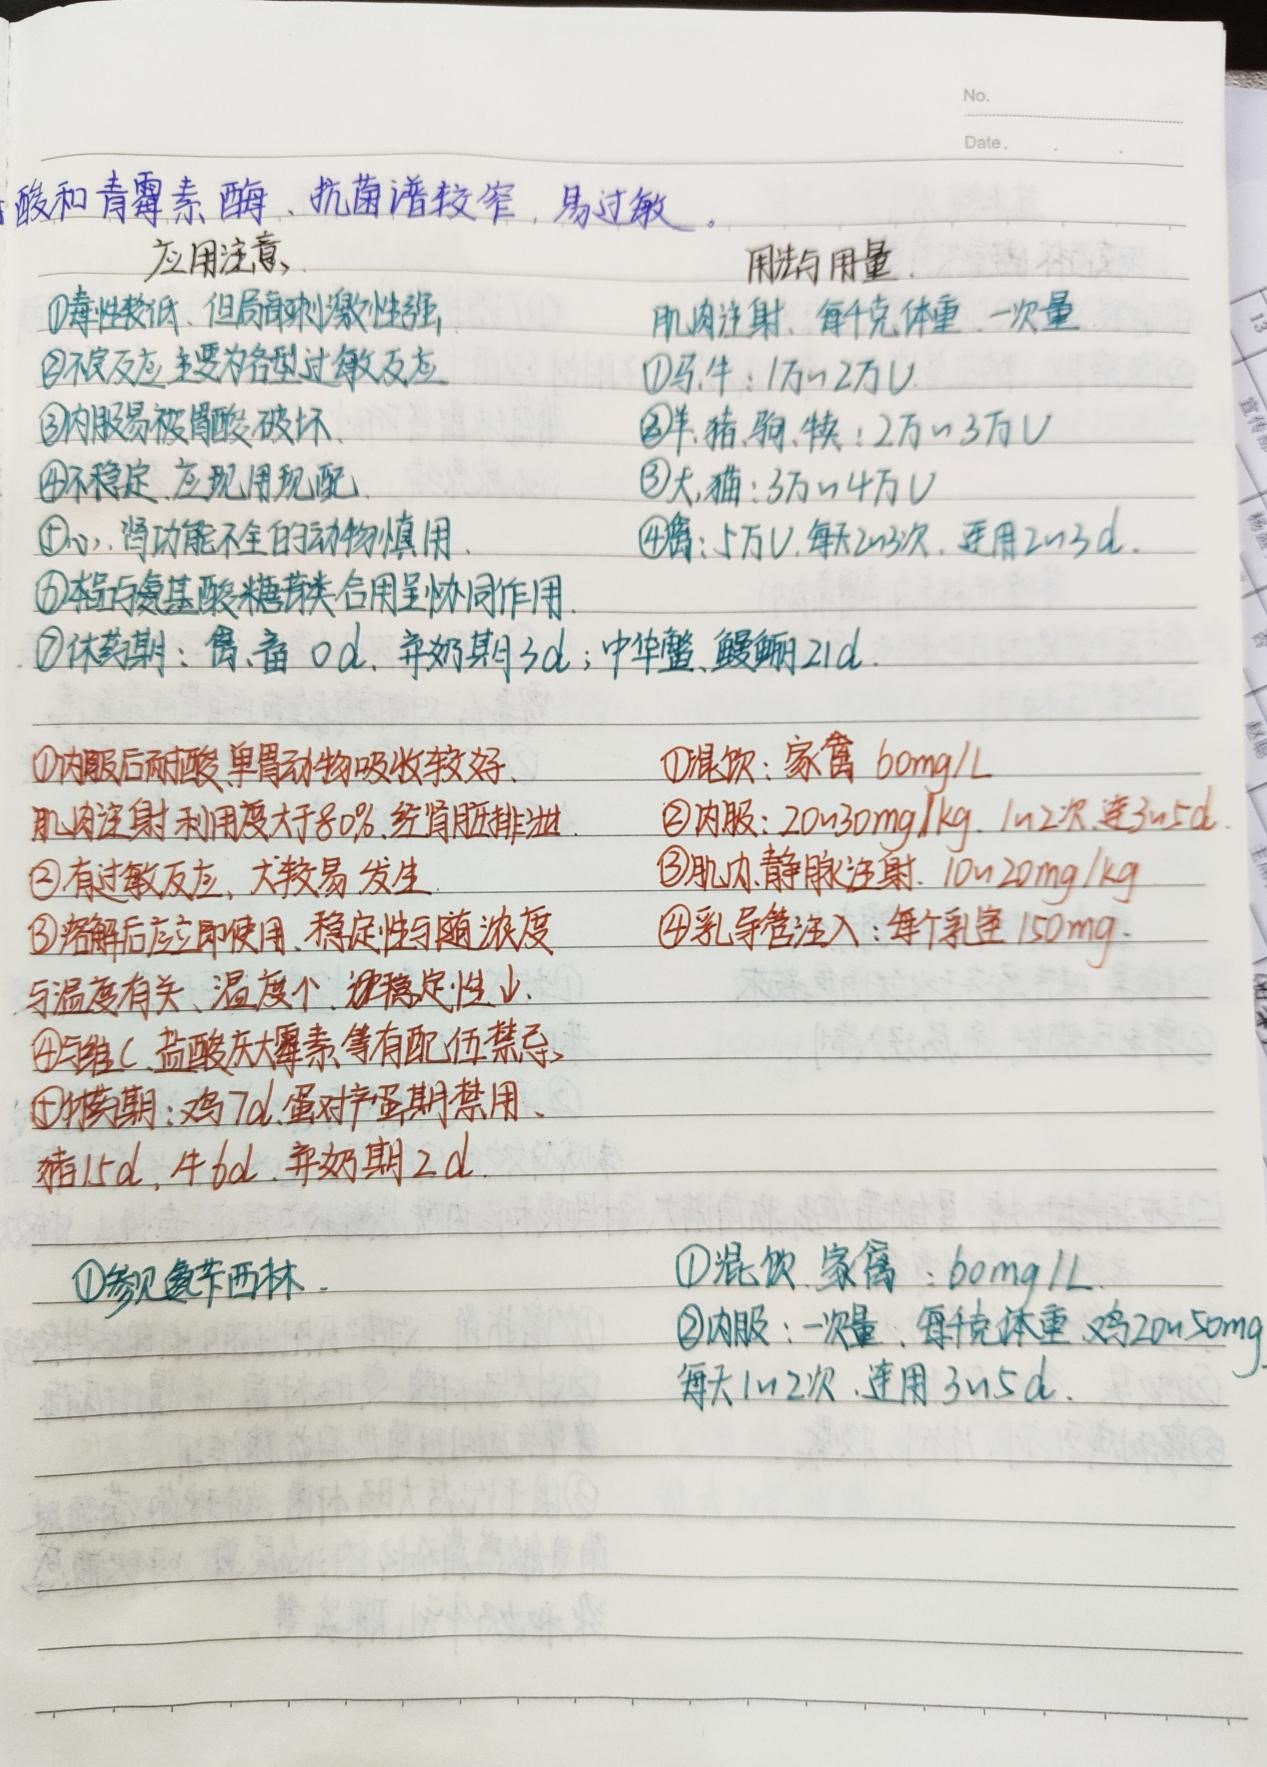 No.
Date.
酸和青霉素酶、抗菌谱较窄,易过敏。
应用注意、
用法与用量.
①毒性较低、但局部刺激性强,
②不良反应主要为各型过敏反应
③内服易被胃酸破坏、
④不稳定、应现用现配、
⑤心、肾功能不全的动物慎用.
⑥本品与氨基酸糖苷类合用呈协同作用.
⑦休药期:禽、畜0d、弃奶期3d;中华鳖、鳗鲡21d.
肌肉注射、每千克体重、一次量
①马、牛:1万~2万U.
②羊、猪、驹、犊:2万~3万U
③犬、猫:3万~4万U
④禽:5万U、每天2~3次、连用2~3d.
①内服后耐酸、单胃动物吸收较好、
肌肉注射利用度大于80%、经肾脏排泄.
②有过敏反应、犬较易发生
③溶解后应立即使用、稳定性与随浓度
与温度有关、温度个、稳定性↓.
④与维C、盐酸灰大霉素等有配伍禁忌、
⑤休药期:鸡7d、蛋对产蛋期禁用、
猪15d,牛6d、弃奶期2d.
①混饮:家禽 60mg/L
②内服:20~30mg/kg、1~2次、连3~5d.
③肌内、静脉注射、10~20mg/kg
④乳导管注入:每个乳室150mg.
①参见氨苄西林.
①混饮、家禽:60mg/L.
②内服:一次量、每千克体重、鸡20~50mg
每天1~2次、连用3~5d.
13
宣传部
杨